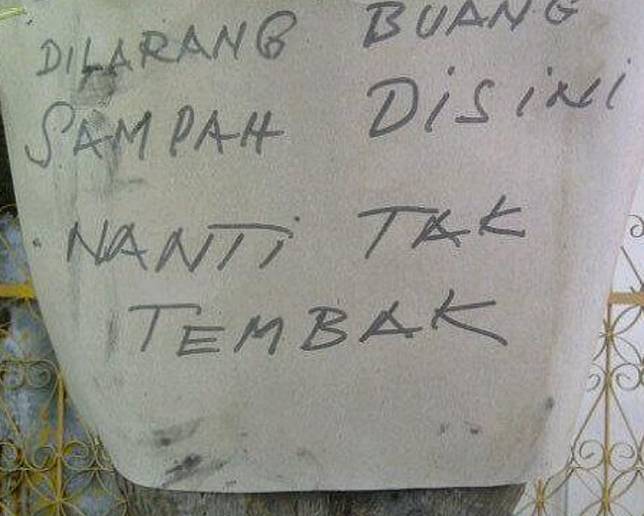 DILARANG BUANG
SAMPAH DISINI
NANTI TAK
TEMBAK